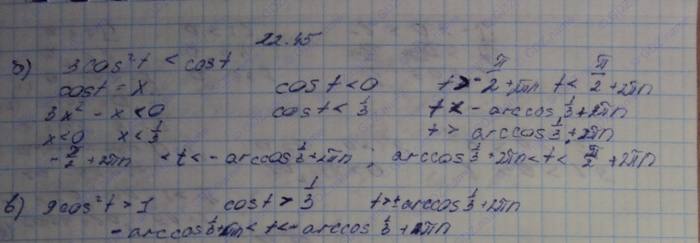 22.45
б) 3cos²t < cost
cost = x cost < 0 t > -π/2 + 2πn t < π/2 + 2πn
3x² - x < 0 cost < 1/3 t < - arccos 1/3 + 2πn
x < 0 x < 1/3 t > arccos 1/3 + 2πn
-π/2 + 2πn < t < - arccos 1/3 + 2πn ; arccos 1/3 + 2πn < t < π/2 + 2πn
в) 9cos²t > 1 cost > 1/3 t > ± arccos 1/3 + 2πn
- arccos 1/3 + πn < t < - arccos 1/3 + 2πn